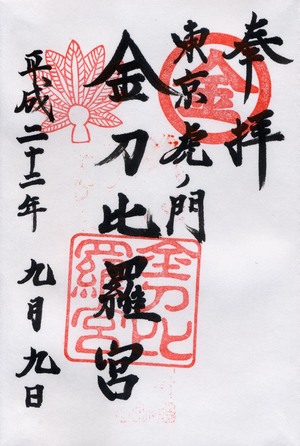 奉拝
東京虎ノ門
金刀比羅宮
平成二十二年 九月 九日
金
金刀比
羅宮